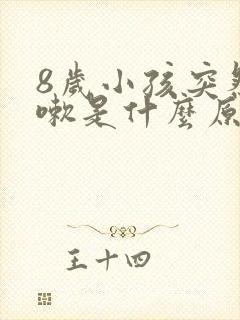 8歲小孩突
嗽是什麼原
王十四